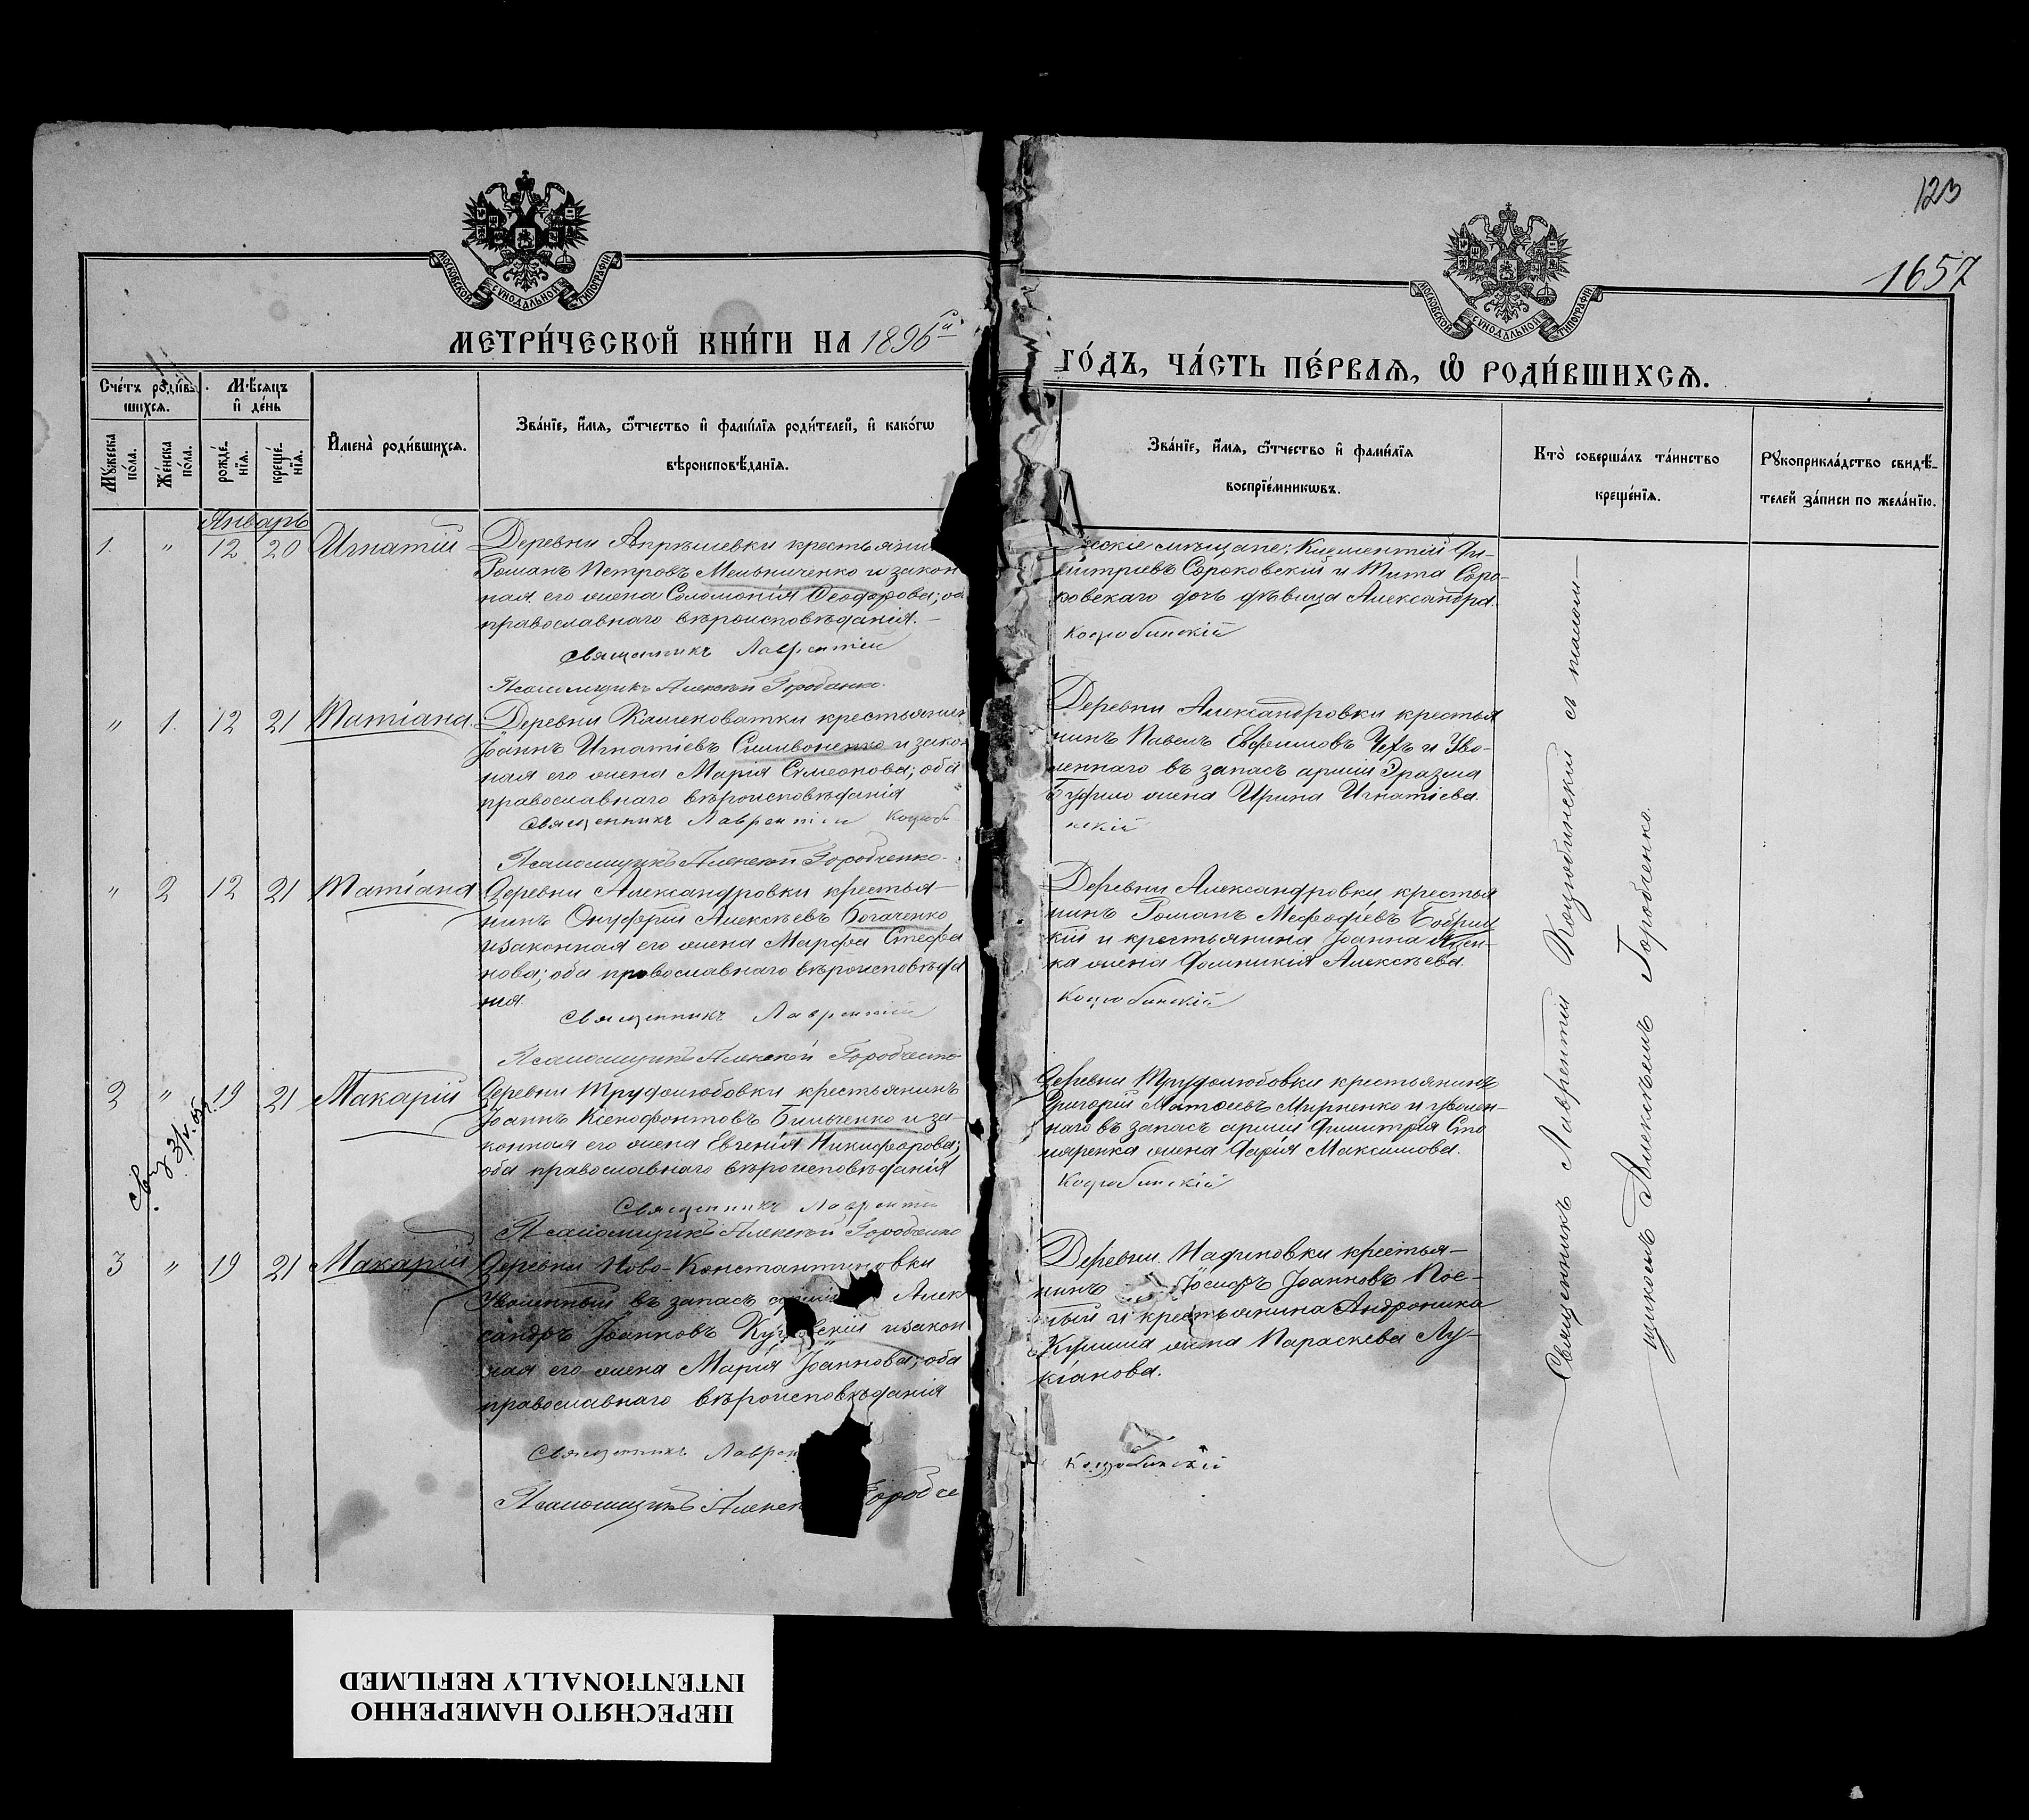 123
1657
МОСКОВСКОЙ СѴНОДАЛЬНОЙ ТИПОГРАФІИ
МОСКОВСКОЙ СѴНОДАЛЬНОЙ ТИПОГРАФІИ
МЕТРИ́ЧЕСКОЙ КНИ́ГИ НА 1896й
ГО́ДЪ, ЧА́СТЬ ПЕ́РВАѦ, Ѡ҆ РОДИ́ВШИХСѦ.
Сче́тъ роди́в-
шихсѧ.
Мѣ́сѧцъ
и҆ де́нь
Мꙋ́жеска по́ла.
Же́нска по́ла.
рожде́-
нїѧ.
креще́-
нїѧ.
И҆мена̀ роди́вшихсѧ.
Зва́нїе, и҆́мѧ, ѻ҆́тчество и҆ фами́лїѧ роди́телей, и҆ како́гѡ
вѣроисповѣ́данїѧ.
Зва́нїе, и҆́мѧ, ѻ҆́тчество и҆ фами́лїѧ
воспрїе́мникѡвъ.
Кто̀ соверша́лъ та́инство
креще́нїѧ.
Рꙋкоприкла́дство свидѣ́-
телей за́писи по жела́нїю.
Январь
1. " 12 20 Игнатій
Деревни Апрѣлевки крестьяни
Романъ Петровъ Мельниченко и закон
ная его жена Соломонія Ѳеодорова; об
православнаго вѣроисповѣданія.
Священникъ Лаврентій
Псаломщикъ Алексѣй Горобченко
мѣщане: Климентій Ди-
митріевъ Сороковскій и Тита Соро-
ковскаго дочь дѣвица Александра.
Коцюбинскій
" 1. 12 21 Титіана
Деревни Каменоватки крестьянин
Іоаннъ Игнатіевъ Силивоненко и зако
ная его жена Марія Симеонова; оба
православнаго вѣроисповѣданія
Священникъ Лаврентій Коцюби
Псаломщикъ Алексѣй Горобченко
Деревни Александровки крестья
нинъ Павелъ Евфимовъ Чехъ и Уво-
леннаго въ запасъ арміи Эразма
жена Ирина Игнатіева.
нскій
" 2 12 21 Татіана
Деревни Александровки крестья-
нинъ Онуфрій Алексѣевъ Богаченко
и законная его жена Марфа Стефа
нова; оба православнаго вѣроисповѣда
нія
Священникъ Лаврентій
Псаломщикъ Алексѣй Горобченко
Деревни Александровки крестья
нинъ Романъ Меѳодіевъ Бобриц
кій и крестьянина Іоанна Яцен-
ка жена Домникія Алексѣева.
Коцюбинскій
2 " 19 21 Макарій
Деревни Трудолюбовки крестьянинъ
Іоаннъ Ксенофонтовъ Бильченко и за-
конная его жена Евгенія Никифорова;
оба православнаго вѣроисповѣданія
Священникъ Лаврентій
Псаломщикъ Алексѣй Горобченко
Деревни Трудолюбовки крестьянинъ
Григорій Матѳеевъ Мирненко и уволен-
наго въ запасъ арміи Димитрія Сто
ляренка жена Дарія Максимова.
Коцюбинскій
3 " 19 21 Макарій
Деревни Ново-Константиновки
Уволенный въ запасъ арміи Алек
сандръ Іоанновъ и закон
ная его жена Марія Іоаннова; оба
православнаго вѣроисповѣданія
Священникъ Лаврен
Псаломщикъ Алексѣ Горобче
Деревни Надиновки крестья-
нинъ Іосифъ Іоанновъ
и крестьянина Андроника
жена Параскева Лу-
кіанова.
Коцюбинскій
Священникъ Лаврентій Коцюбинскій съ псалом-
щикомъ Алексѣемъ Горобченко.
ПЕРЕСНЯТО НАМЕРЕННО
INTENTIONALLY REFILMED